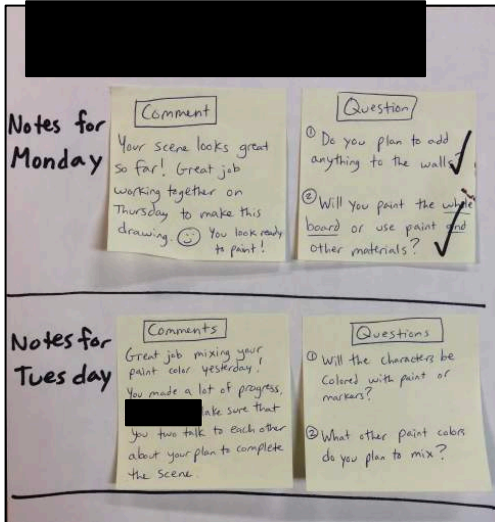 Notes for
Monday
Comment
Your scene looks great
so far! Great job
working together on
Thursday to make this
drawing. You look ready
to paint!
Question
① Do you plan to add
anything to the walls?
② Will you paint the whole
board or use paint and
other materials?
Notes for
Tuesday
Comments
Great job mixing your
paint color yesterday!
You made a lot of progress,
ake sure that
you two talk to each other
about your plan to complete
the scene.
Questions
① Will the characters be
colored with paint or
markers?
② What other paint colors
do you plan to mix?